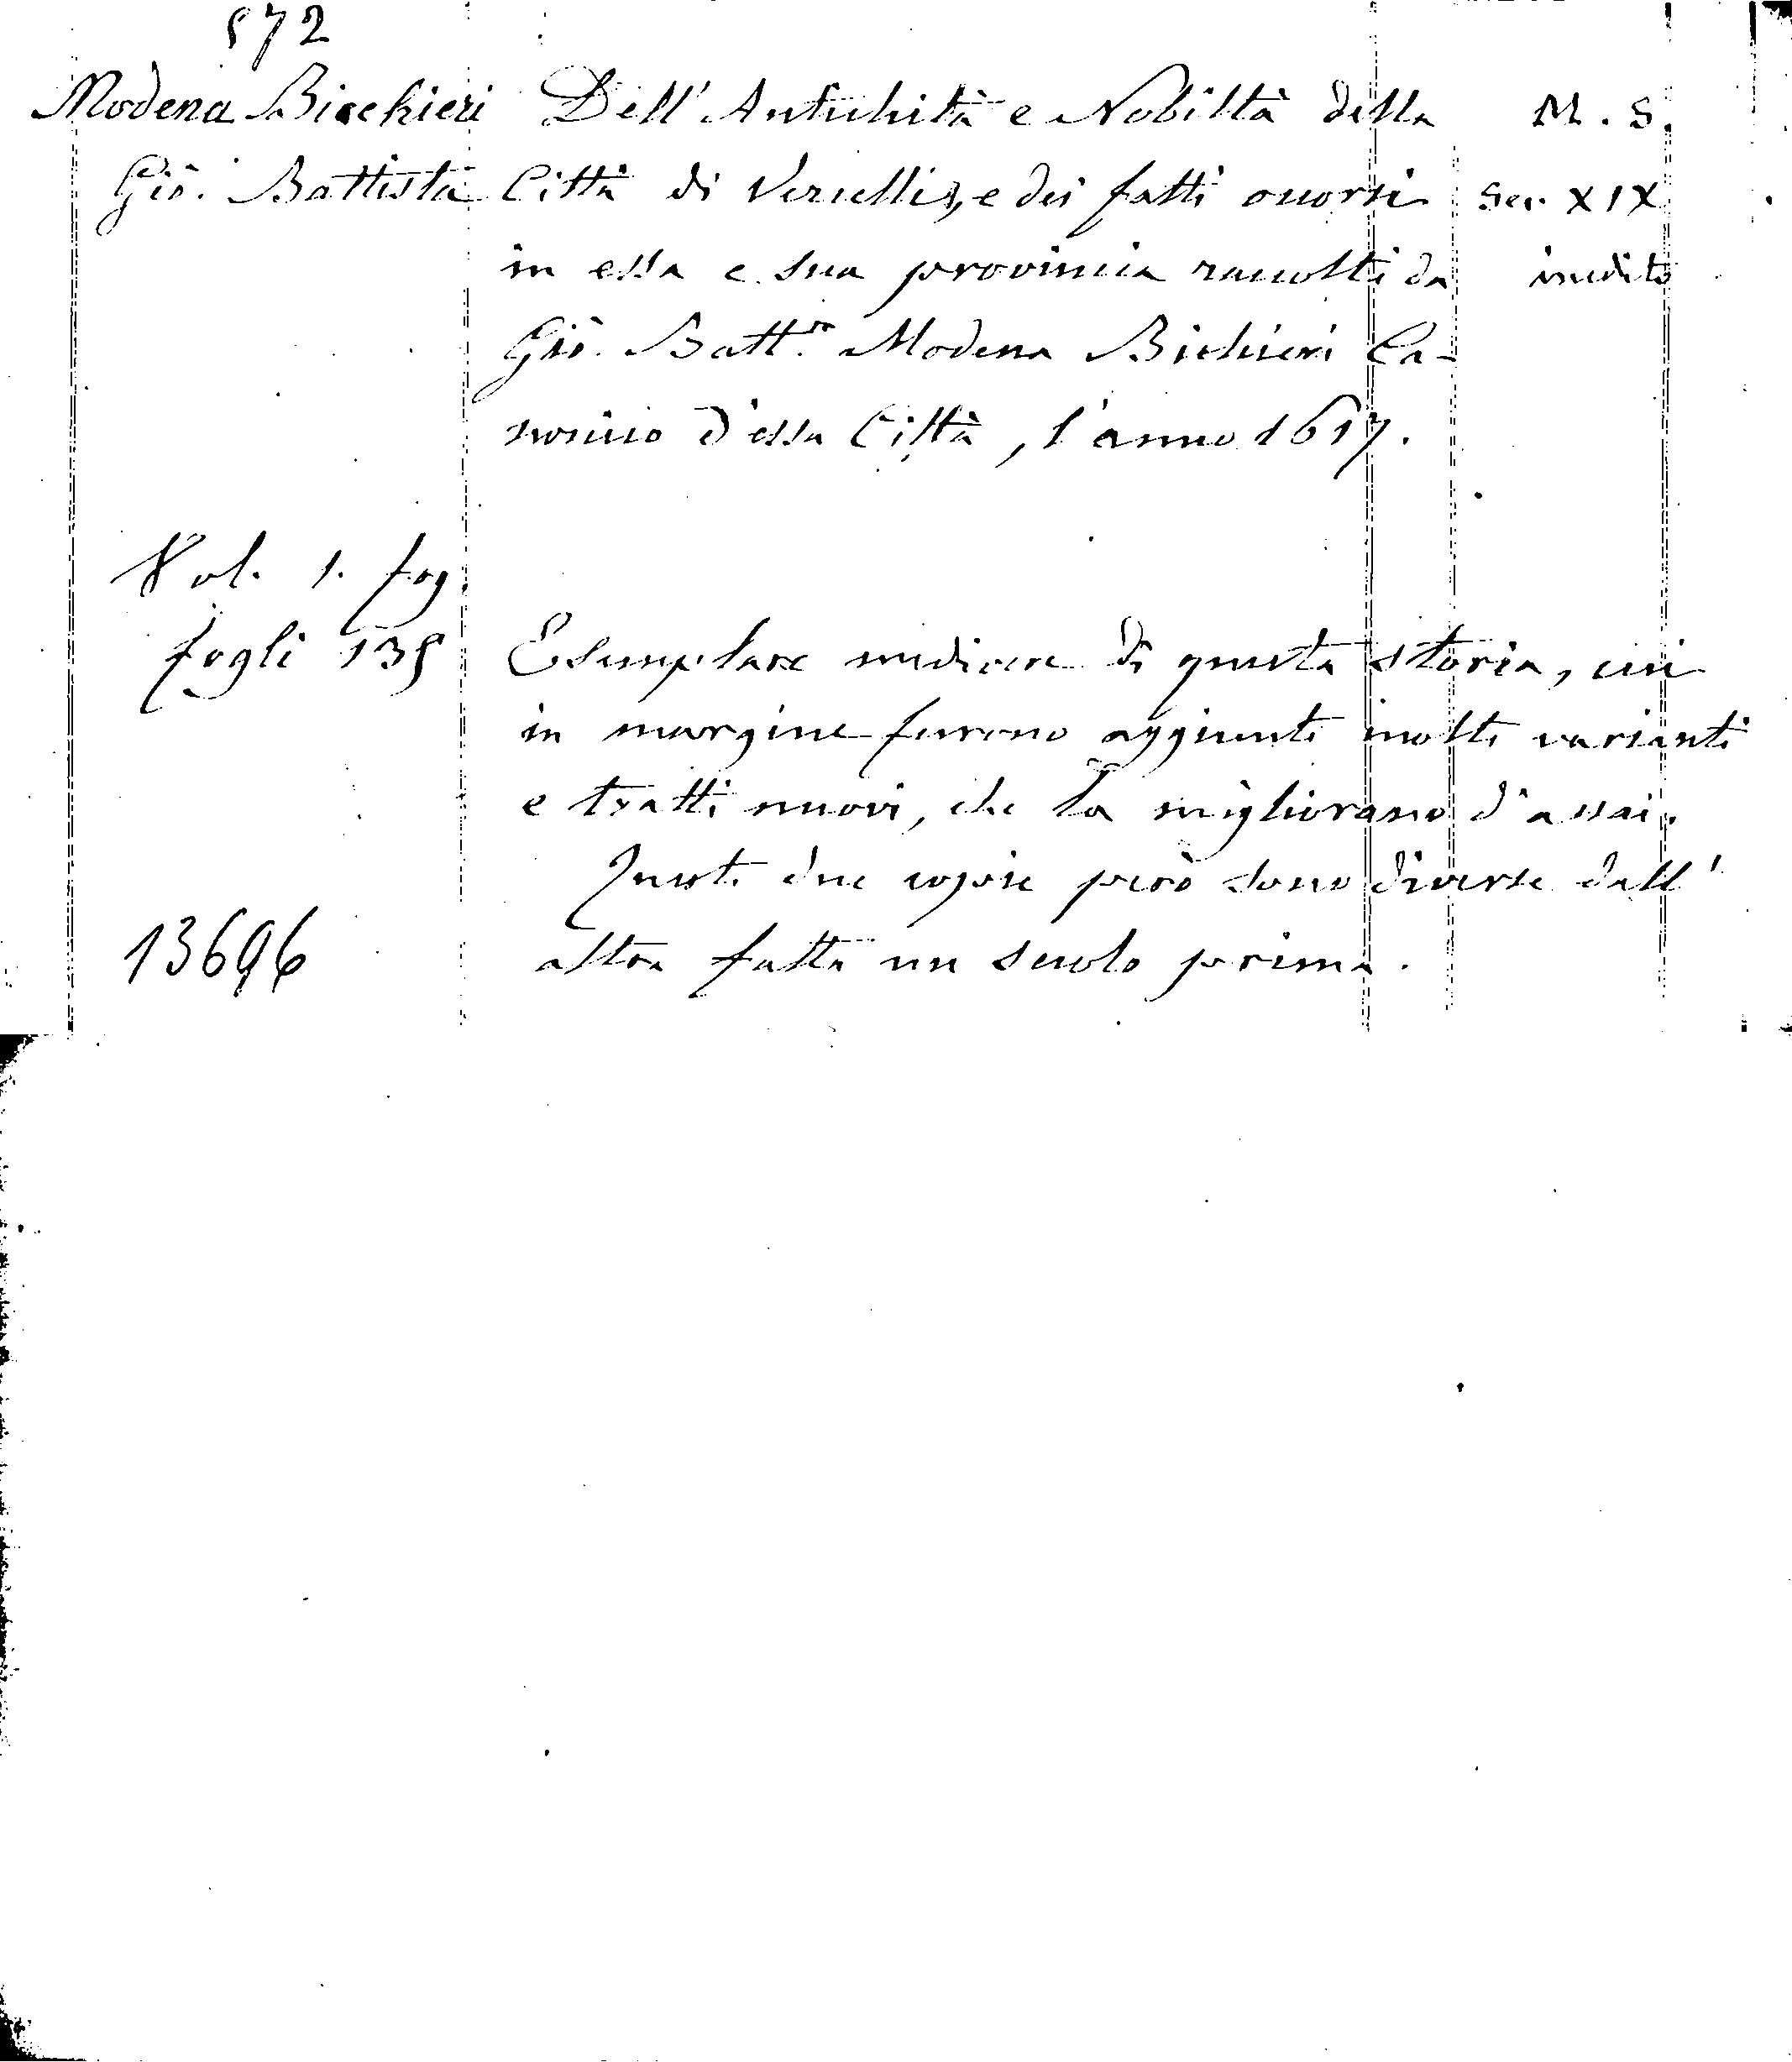 572
Modena Bicchieri
Gio. Battista
Dell' Antichità e Nobiltà della
Città di Vercelli, e dei fatti occorsi
in essa e sua provincia raccolti da
Gio. Batt.a Modena Bichieri Ca-
nonico d'essa Città, l'anno 1617.
M. S.
Sec. XIX
inedito
Vol. 1. fog.
fogli 135
Esemplare mediocre di questa storia, cui
in margine furono aggiunte molte varianti
e tratti nuovi, che la migliorano d'assai.
Queste due copie però sono diverse dall'
altra fatta un secolo prima.
13696